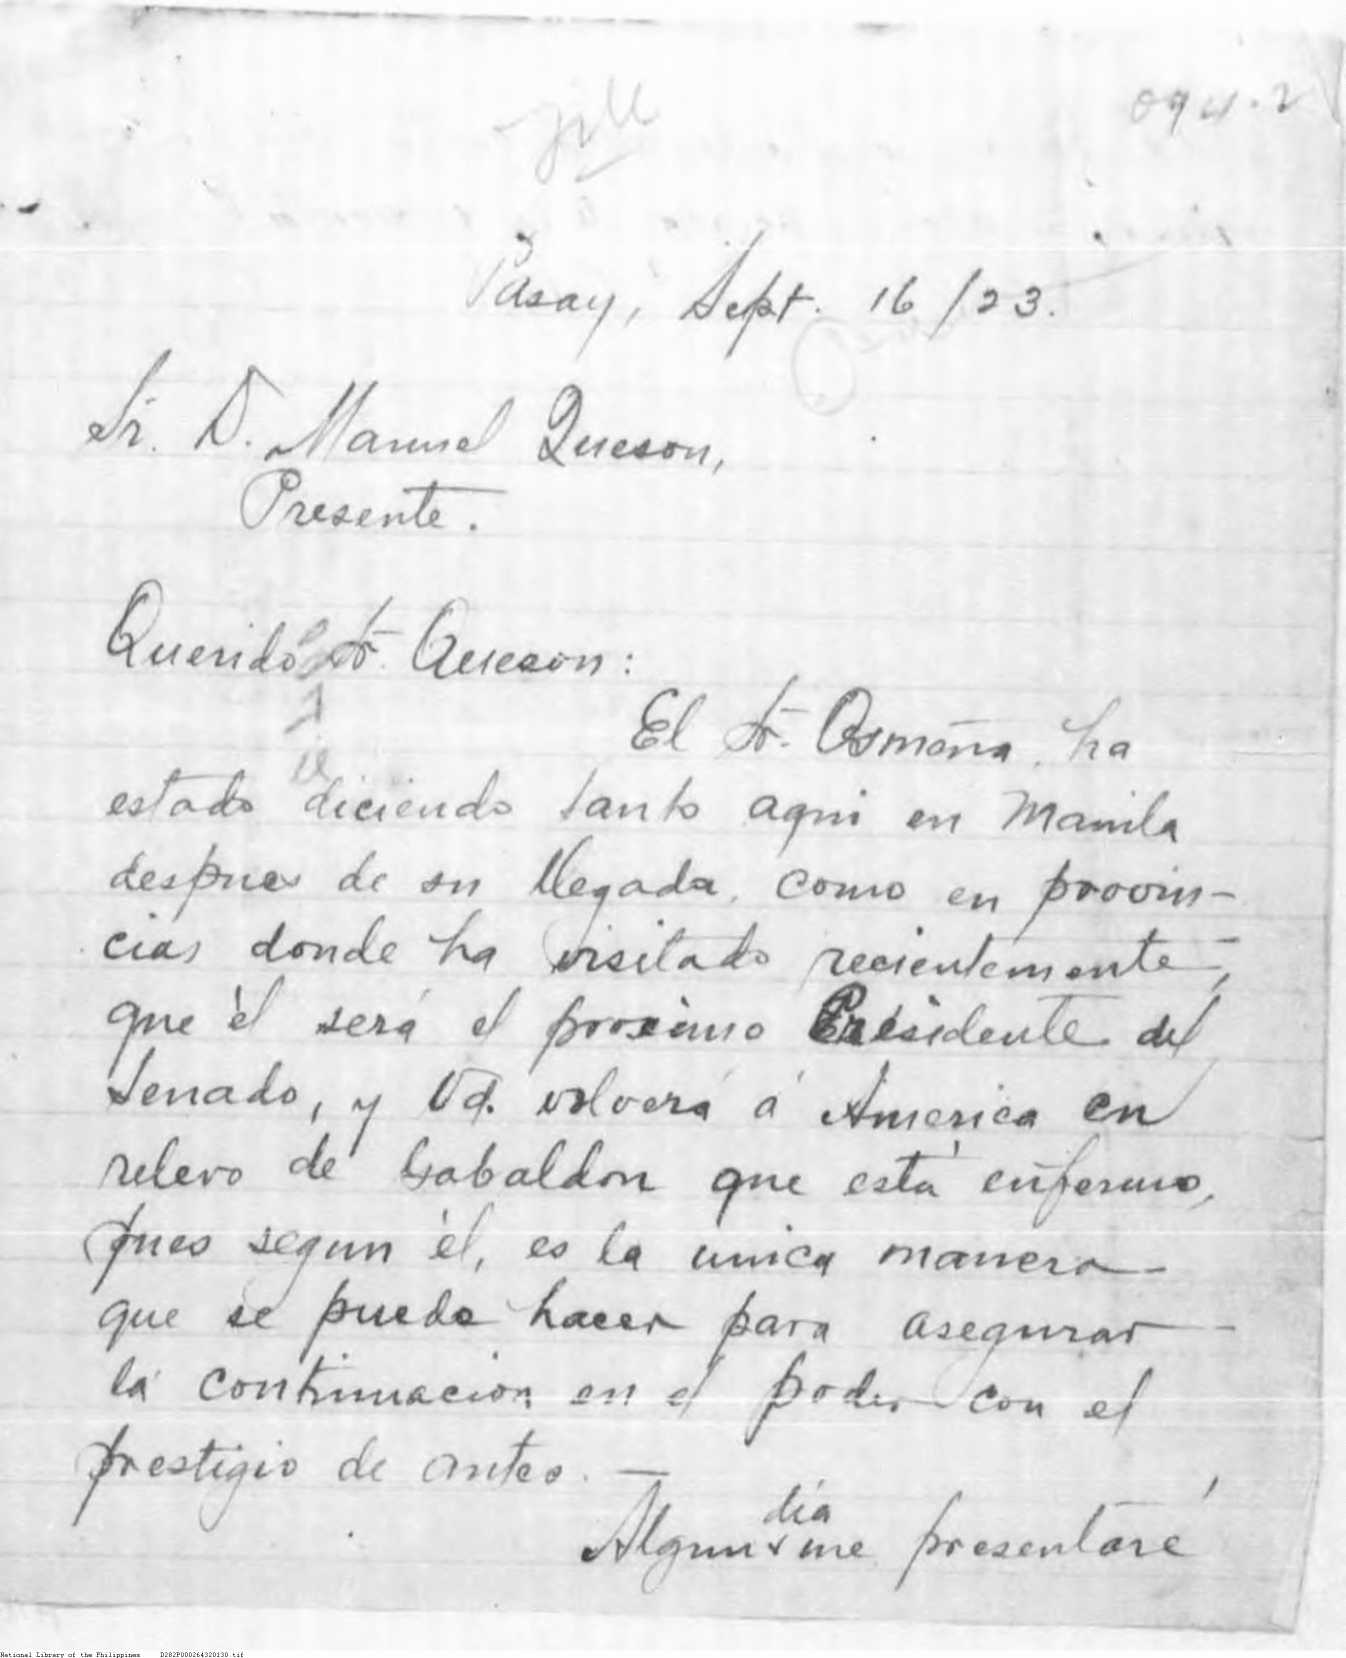 file
094-2
Pasay, Sept. 16/23.
Sr. D. Manuel Queson,
Presente.
Querido Sr. Queson:
El Sr. Osmeña, ha
estado diciendo tanto aqui en Manila
despues de su llegada, como en provin-
cias donde ha visitado recientemente,
que él será el proximo Presidente del
Senado, y Vd. volverá á America en
relevo de Gabaldon que está enfermo,
pues segun él, es la unica manera
que se puede hacer para asegurar
la continuacion en el poder con el
prestigio de antes. —
Algun día me presentaré
National Library of the Philippines D282P000264320130.tif